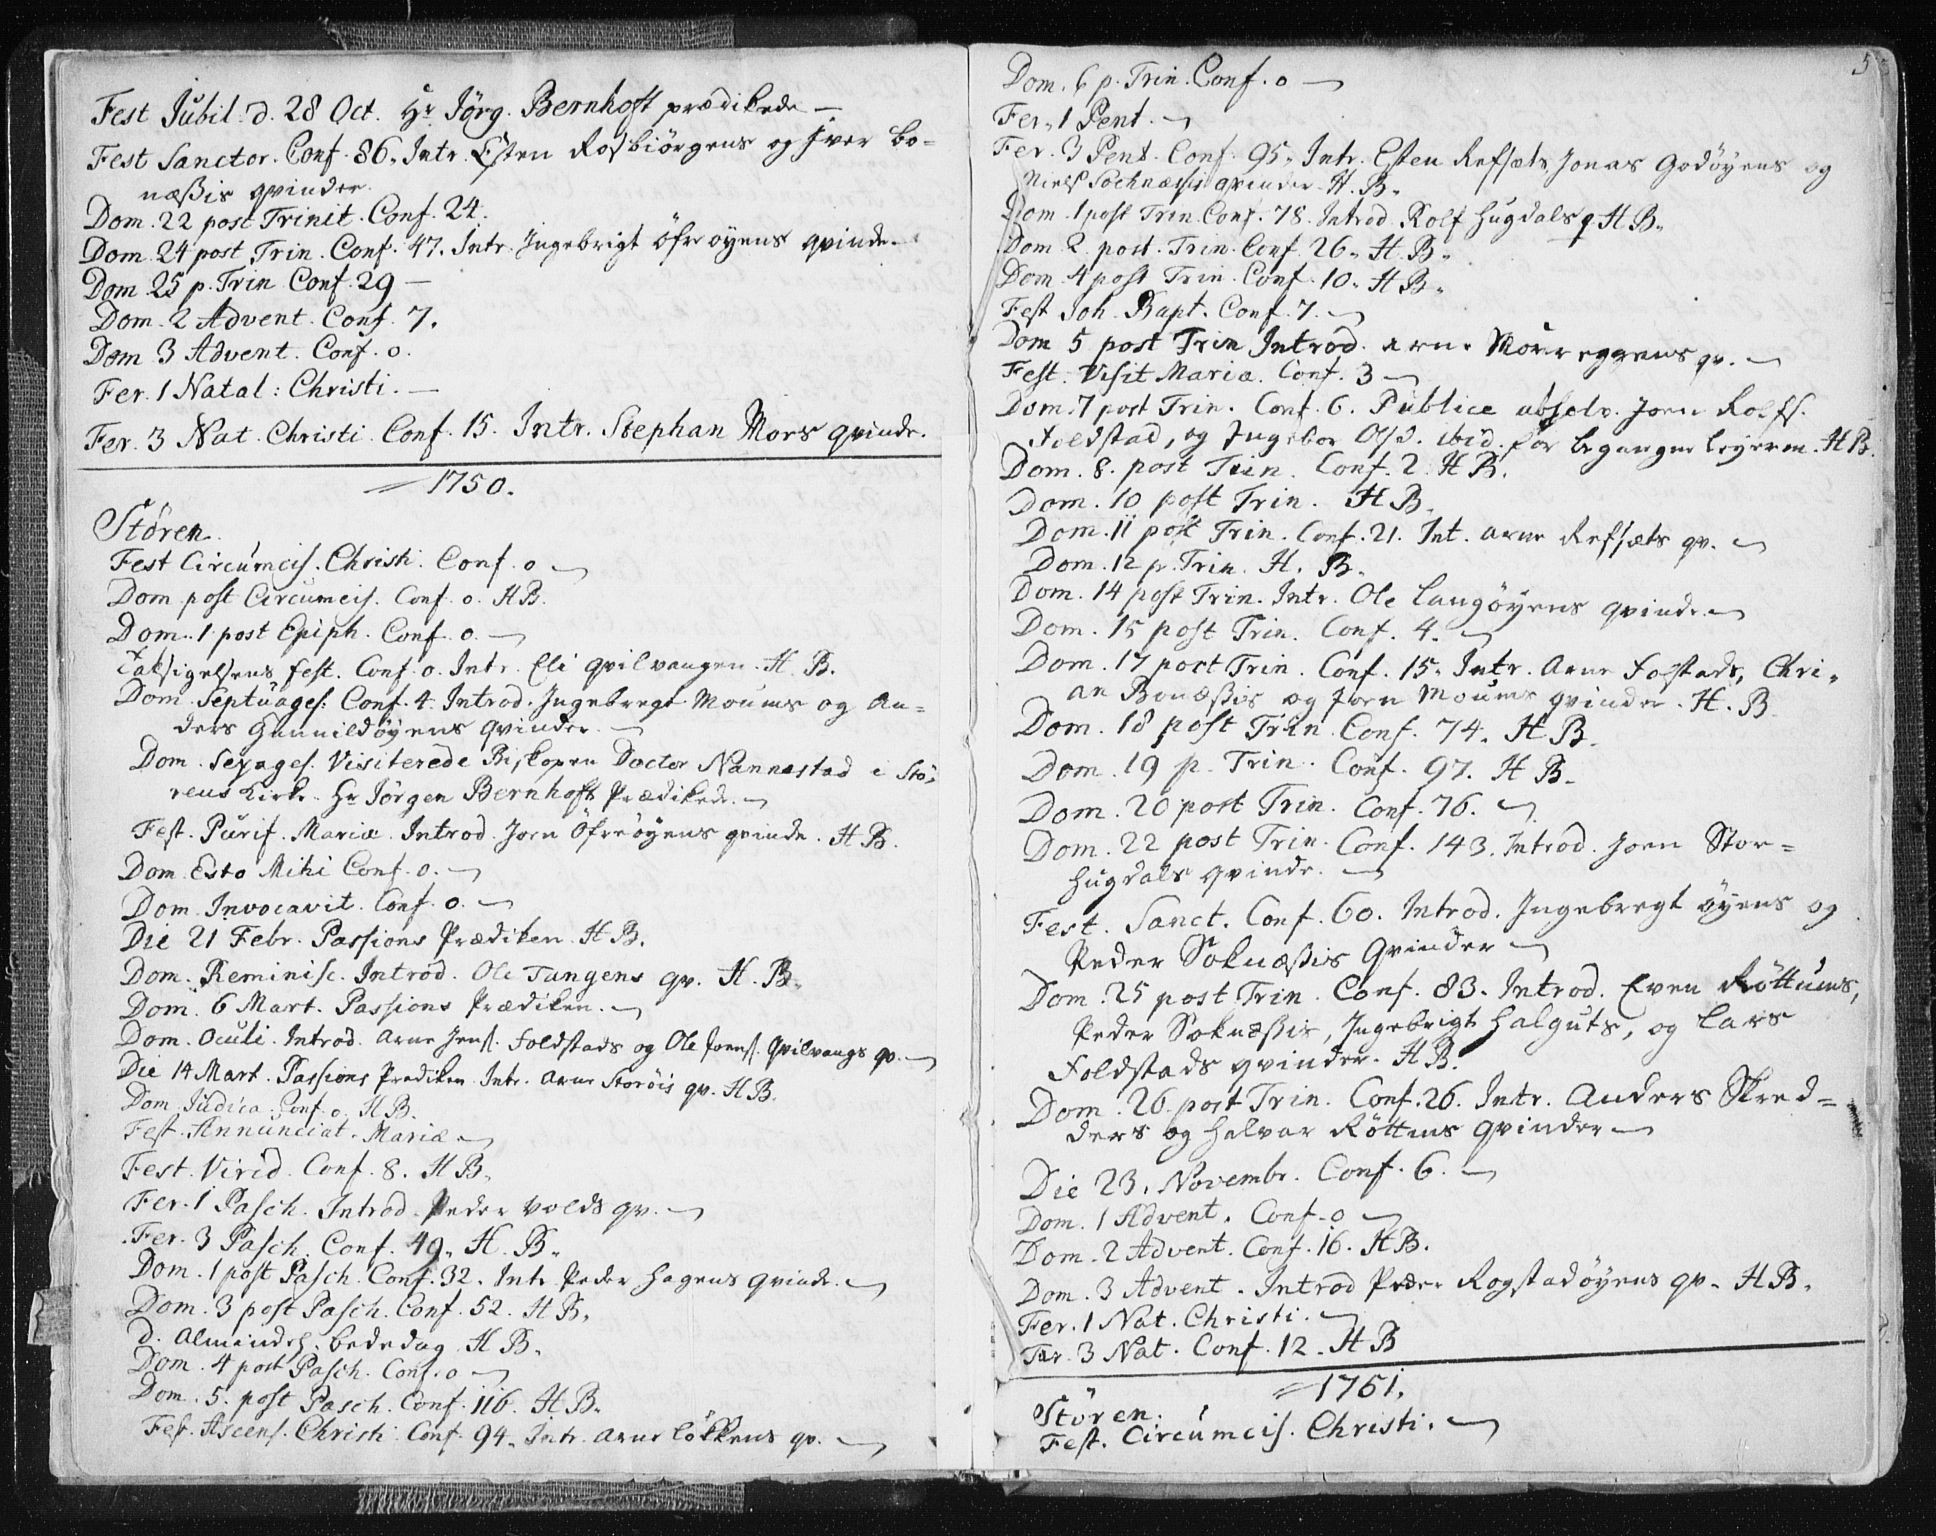 Fest Jubil. d. 28 Oct. Hr Jörg. Bernhoft prædikede —
Fest Sanctor. Conf. 86. Intr. Esten Rosbiörgens og Iver Bo-
næssis qvinder.
Dom. 22 post Trinit. Conf. 24.
Dom. 24 post Trin. Conf. 47. Intr. Ingebrigt Öfreöyens qvinde.
Dom. 25 p. Trin Conf. 29 —
Dom. 2 Advent. Conf. 7.
Dom 3 Advent. Conf. 0.
Fer. 1 Natal: Christi. —
Fer. 3 Nat. Christi Conf. 15. Intr. Stephan Mors qvinde.
1750.
Stören
Fest Circumcis. Christi. Conf. 0 —
Dom post Circumcis. Conf. 0. H B.
Dom. 1 post Epiph. Conf. 0. —
Taksigelsens fest. Conf. 0. Intr. Eli qvilvangen. H. B.
Dom Septuages. Conf. 4. Introd. Ingebregt Moums og An=
ders Gunnildöyens qvinder. —
Dom. Sexages. Visiterede Biskopen Doctor Nannestad i Stö-
rens Kirke. Hr Jörgen Bernhoft Prædikede. —
Fest. Purif. Mariæ. Introd. Joen Öfreöyens qvinde. H B.
Dom. Esto Mihi Conf. 0. —
Dom. Invocavit. Conf. 0. —
Die 21 Febr. Passions Prædiken. H B.
Dom. Reminisc. Introd. Ole Tangens qv. H. B.
Dom. 6 Mart. Passions Prædiken. —
Dom. Oculi. Introd. Arne Jens. Foldstads og Ole Joens. Qvilvangs qv. —
Die 14 Mart. Passions Prediken Intr. Arne Storöis qv. H B.
Dom. Judica Conf. 0. H B.
Fest. Annunciat. Mariæ —
Fest. Virid. Conf. 8. H B.
Fer. 1 Pasch. Introd. Peder Volds qv. —
Fer. 3 Pasch. Conf. 49. H. B.
Dom. 1 post Pasch. Conf. 32. Intr Peder Hagens qvinde. —
Dom. 3 post Pasch. Conf. 52. H B.
d. Almindel. bededag H B.
Dom. 4 post Pasch. Conf. 0 —
Dom. 5. post Pasch. Conf. 116. H B.
Fest. Ascens. Christi Conf. 94. Intr. Arne Lökkens qv. —
5
Dom. 6 p. Trin. Conf. 0 —
Fer. 1 Pent. —
Fer. 3 Pent. Conf. 95. Intr. Esten Refsæts, Jonas Godöyens og
Niels Sochnæssis qvinder. H. B.
Dom. 1 post Trin. Conf. 78. Introd. Rolf Hugdals q. H B.
Dom 2. post. Trin. Conf 26. H. B.
Dom 4 post Trin. Conf. 10. H B.
Fest Joh. Bapt. Conf. 7. —
Dom 5 post Trin Introd. Arne Morreggens qv. —
Fest. Visit Maria. Conf. 3 —
Dom. 7 post Trin. Conf. 6. Publice absolv. Joen Rolfs.
Foldstad, og Ingebor Olsd. ibid. for begangne leyerm. H B.
Dom. 8. post Trin. Conf. 2. H B.
Dom. 10 post Trin. H B.
Dom. 11 post Trin. Conf. 21. Int. Arne Refsæts qv. —
Dom. 12 p. Trin. H. B.
Dom. 14 post Trin. Intr. Ole Langöyens qvinde. —
Dom. 15 post Trin. Conf. 4. —
Dom. 17 post Trin. Conf. 15. Intr. Arne Folstads, Chri-
an Bonæssis og Joen Moums qvinder. H. B.
Dom. 18 post Trin. Conf. 74. H B.
Dom. 19 p. Trin. Conf. 97. H B.
Dom. 20 post Trin. Conf. 76. —
Dom. 22 post Trin. Conf. 143. Introd. Joen Stor=
hugdals qvinde. —
Fest. Sanct. Conf. 60. Introd. Ingebregt Öyens og
Peder Soknæssis Qvinder —
Dom. 25 post Trin. Conf. 83. Introd. Even Röttums,
Peder Soknæssis, Ingebrigt Halguts, og Lars
Foldstads qvinder. H B.
Dom. 26. post Trin. Conf. 26. Intr. Anders Skred=
ders og Halvar Röttums qvinder —
Die 23. Novembr. Conf. 6. —
Dom. 1 Advent. Conf. 0 —
Dom. 2 Advent. Conf. 16. H B.
Dom. 3 Advent. Introd Peder Rogstadöyens qv. H B.
Fer. 1 Nat. Christi. —
Fer. 3 Nat. Conf. 12. H B
1751.
Stören.
Fest. Circumcis. Christi. —